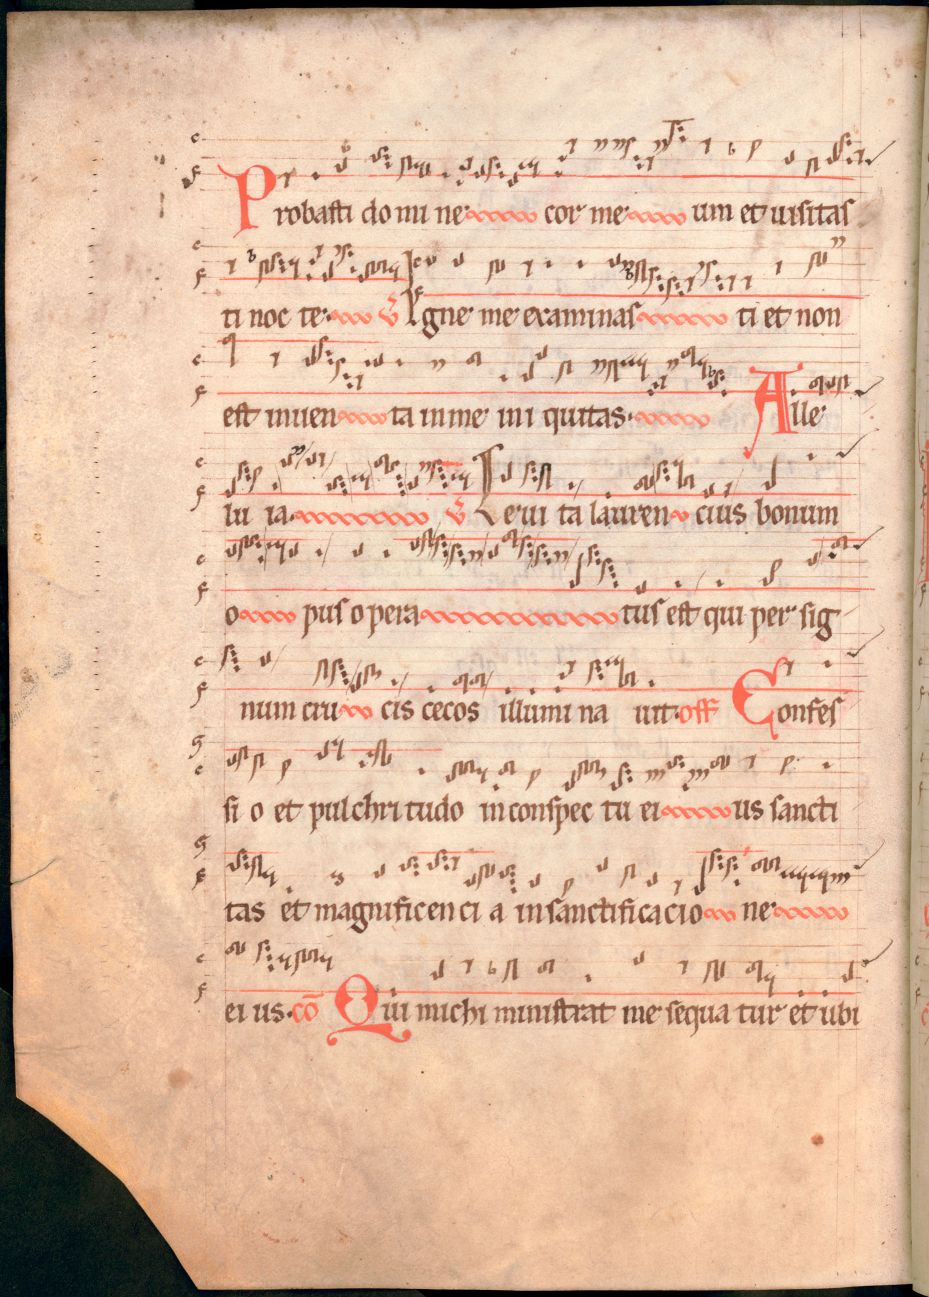 Probasti domine cor meum et uisitas
ti nocte. V Igne me examinasti et non
est inuenta in me iniquitas. Alle
luia. V Leuita laurencius bonum
opus operatus est qui per sig
num crucis cecos illuminauit. off Confes
sio et pulchritudo in conspectu eius sancti
tas et magnificencia in sanctificacione
eius. cō Qui michi ministrat me sequatur et ubi